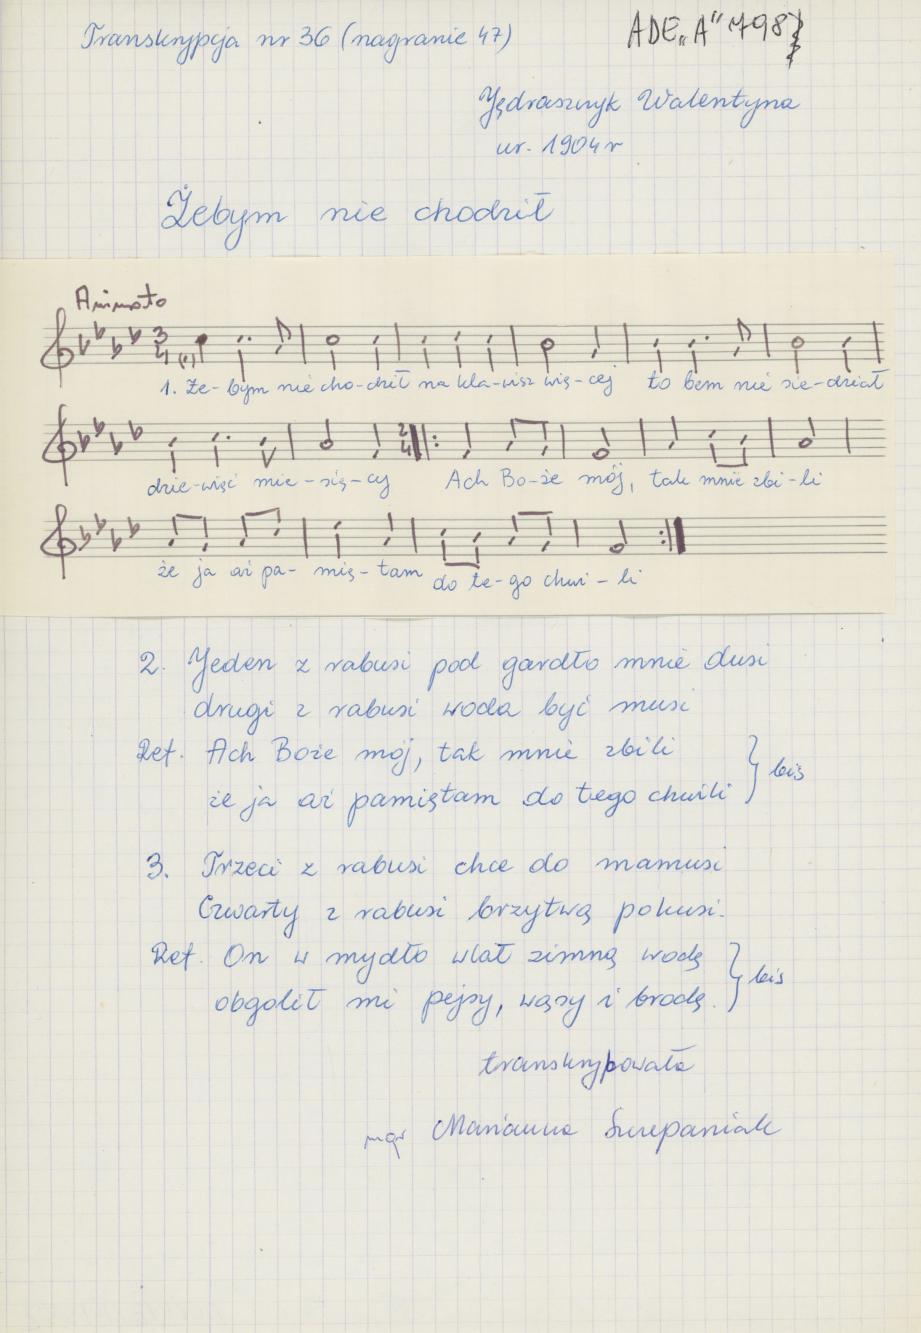 Transkrypcja nr 36 (nagranie 47)
ADE „A" 798
Jędraszczyk Walentyna
ur. 1904 r
Żebym nie chodził
Animato
3 4
1. Że-bym nie cho-dził na kla-wisz wię-cej to bem nie sie-dział
2 4
dzie-więć mie-się-cy Ach Bo-że mój, tak mnie zbi-li
że ja aż pa-mię-tam do te-go chwi-li
2. Jeden z rabusi pod gardło mnie dusi
drugi z rabusi woda być musi
Ref. Ach Boże mój, tak mnie zbili
że ja aż pamiętam do tego chwili } bis
3. Trzeci z rabusi chce do mamusi
Czwarty z rabusi brzytwą pokusi.
Ref. On w mydło wlał zimną wodę
obgolił mi pejsy, wąsy i brodę. } bis
transkrypowała
mgr Marianna Szczepaniak